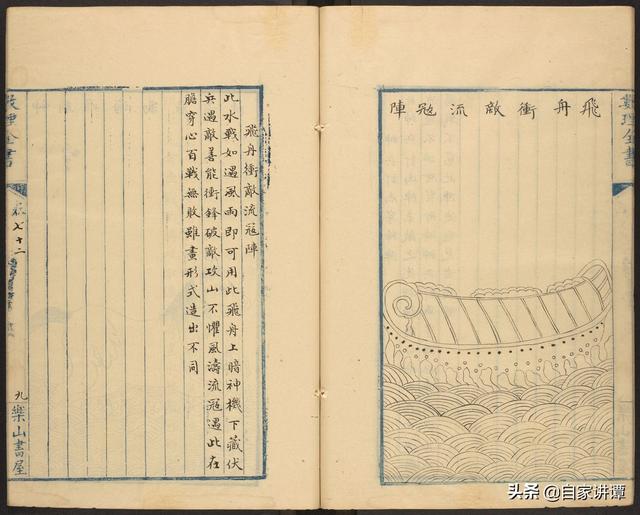 數理全書
飛舟衝敵流冦陣
飛舟衝敵流冦陣
此水戰如遇風雨即可用此飛舟上暗神機下藏伏
兵遇敵善能衝鋒破敵攻山不懼風濤流冦遇此在
膽穿心百戰無敗雖畫形式造出不同
數理全書
卷七十二
九
樂山書屋
头条 @自家讲谭